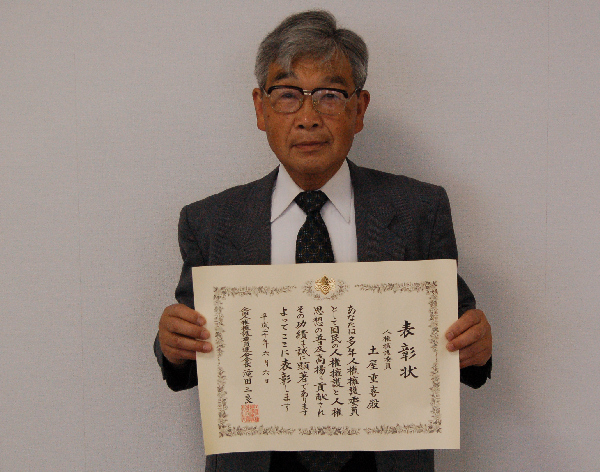 表彰状
人権擁護委員
土屋重喜殿
あなたは多年人権擁護委員
として国民の人権擁護と人権
思想の普及高揚に貢献され
その功績は誠に顕著であります
よってここに表彰します
平成二十年六月六日
全国人権擁護委員連合会長 滝田三良